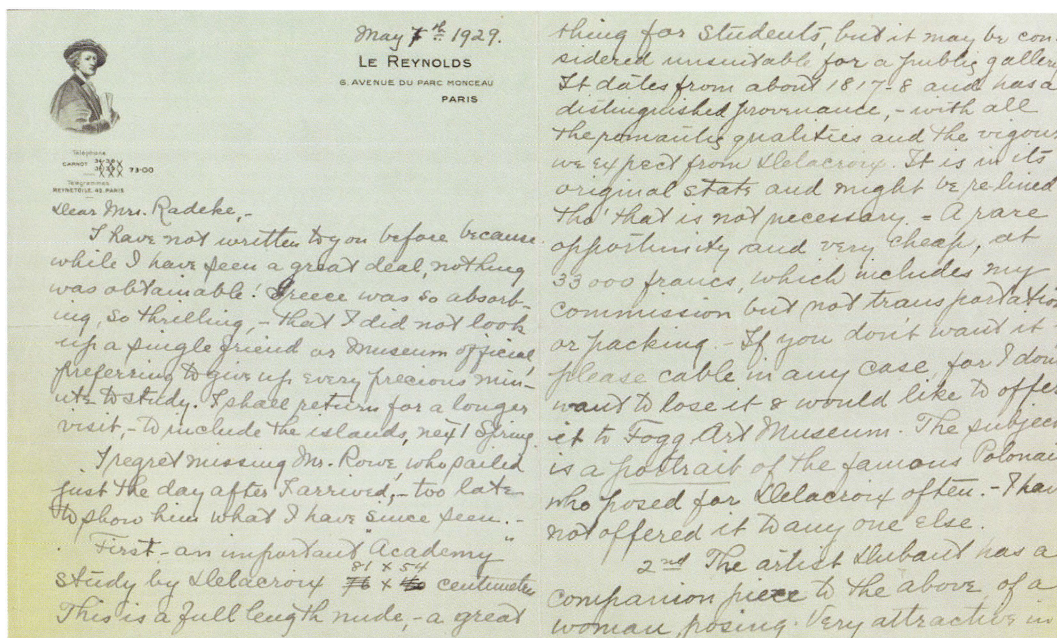 May 7th 1929.
LE REYNOLDS
6. AVENUE DU PARC MONCEAU
PARIS
Téléphone
CARNOT 73-00
Télégrammes
REYNETOILE. 43. PARIS
Dear Mrs. Radeke,-
I have not written to you before because
while I have seen a great deal, nothing
was obtainable! Greece was so absorb-
ing, so thrilling,- that I did not look
up a single friend or Museum official,
preferring to give up every precious min-
ute to study. I shall return for a longer
visit,- to include the islands, next Spring.
I regret missing Mr. Rowe, who sailed
just the day after I arrived,- too late
to show him what I have since seen.-
First- an important "Academy"
81 x 54
study by Delacroix 76 x centimeters
This is a full length nude,- a great
thing for students, but it may be con-
sidered unsuitable for a public gallery
It dates from about 1817-8 and has a
distinguished provenance,- with all
the romantic qualities and the vigour
we expect from Delacroix. It is in its
original state and might be re-lined
tho' that is not necessary.- A rare
opportunity and very cheap, at
33000 francs, which includes my
commission but not transportation
or packing.- If you don't want it
please cable in any case, for I don't
want to lose it & would like to offer
it to Fogg Art Museum. The subject
is a portrait of the famous Polonais
who posed for Delacroix often.- I have
not offered it to any one else.
2nd The artist Dubaut has a
companion piece to the above, of a
woman posing. Very attractive in